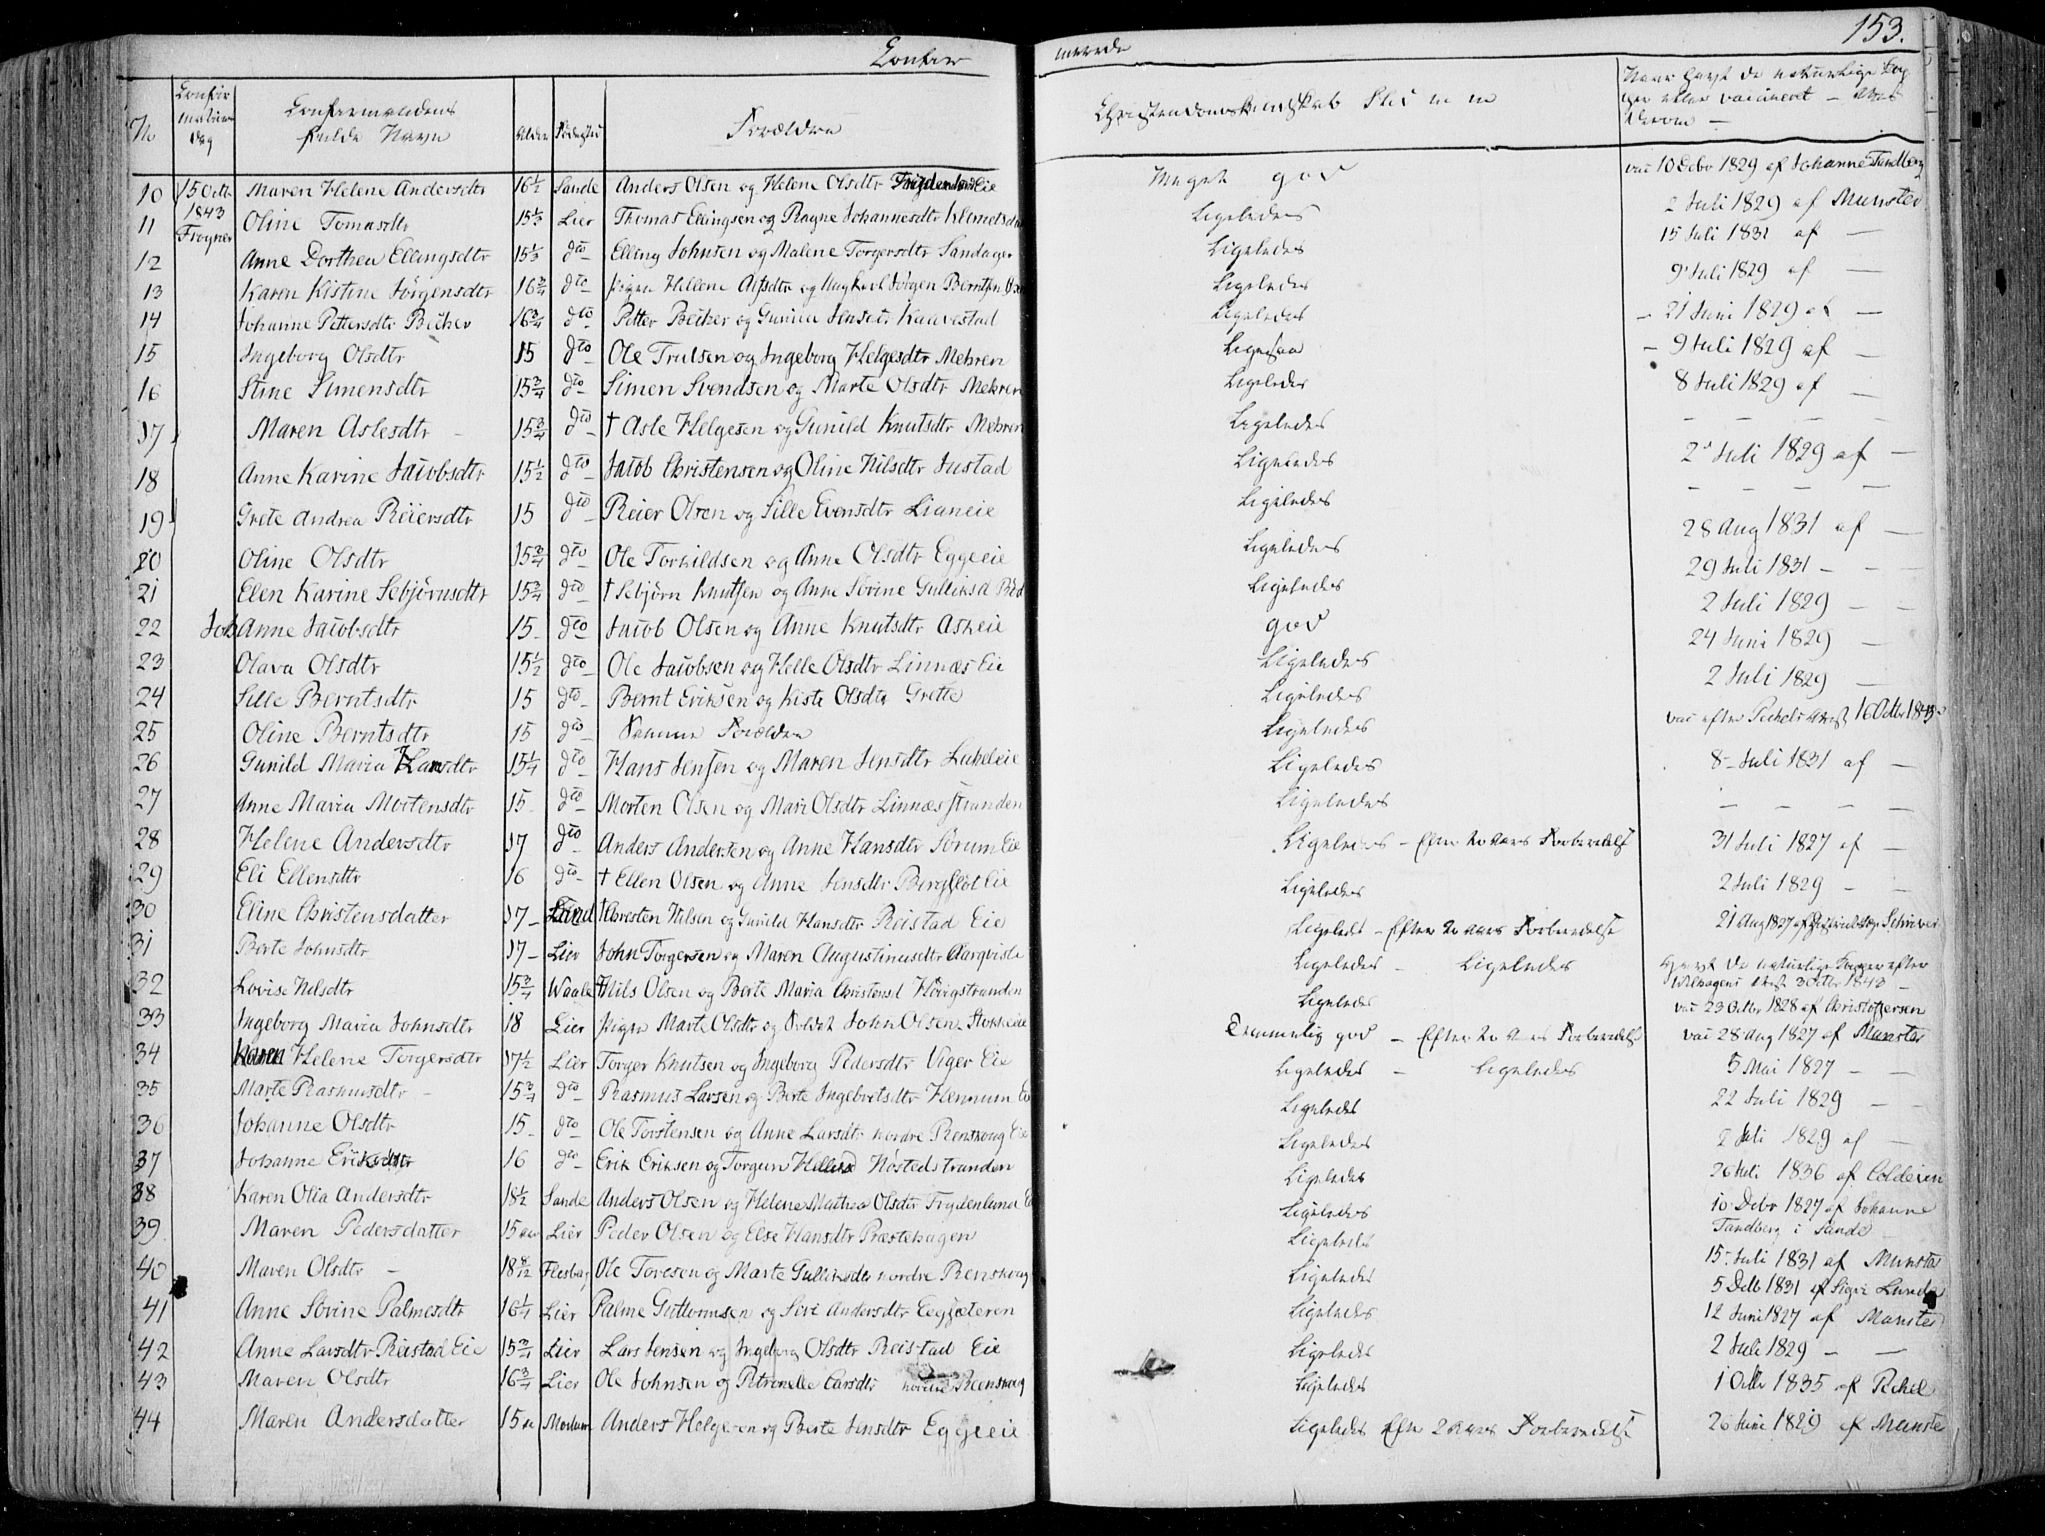 Confir merede 153.
No Confirmations Dag Confirmandens fulde Navn Alder Fødested Forældre Christendomskundskab Flid m m Have havt de naturlige Kopper eller vaccineret
10 15 Octr Maren Helene Andersdtr 16½ Sande Anders Olsen og Helene Olsdtr Frydenlund Eie Meget god vac 10 Decbr 1829 af Johanne Tandberg
11 1843 Oline Tomasdtr 15⅓ Lier Thomas Ellingsen og Ragne Johannesdtr Ligeledes 2 Juli 1829 af Munster
Frogner
12 Anne Dorthea Ellingsdtr 15⅓ dto Elling Johnsen og Malene Torgersdtr Sandager Ligeledes 15 Juli 1831 af —
13 Karen Kistine Jørgensdtr 16¾ dto Pigen Hellene Alfsdtr og Ungkarl Jørgen Berntsen Ligeledes 9 Juli 1829 af —
14 Johanne Pettersdtr Becker 16¾ dto Petter Becker og Gunild Jensdtr Kaavestad Ligeledes – 21 Juni 1829 af —
15 Ingeborg Olsdtr 15 dto Ole Trulsen og Ingeborg Helgesdtr Mehren Ligesaa – 9 Juli 1829 af —
16 Stine Simensdtr 15¾ dto Simen Svendsen og Marte Olsdtr Mehren Ligeledes 8 Juli 1829 af —
17 Maren Aslesdtr 15¾ dto † Asle Helgesen og Gunild Knutsdtr Mehren Ligeledes — — — —
18 Anne Karine Jacobsdtr 15½ dto Jacob Christensen og Oline Nilsdtr Justad Ligeledes 2 Juli 1829 af —
19 Grete Andrea Reiersdtr 15 dto Reier Olsen og Sille Evensdtr Lianeie Ligeledes — — — —
20 Oline Olsdtr 15¾ dto Ole Torkildsen og Anne Olsdtr Eggeeie Ligeledes 28 Aug 1831 af —
21 Elen Karine Sebjørnsdtr 15¾ dto † Sebjørn Knutsen og Anne Sovine Gulliksd Ligeledes 29 Juli 1831 —
22 Job Anne Jacobsdtr 15 dto Jacob Olsen og Anne Knutsdtr Askeie god 2 Juli 1829 — —
23 Olava Olsdtr 15½ dto Ole Jacobsen og Helle Olsdtr Linnæs Eie Ligeledes 24 Juni 1829 —
24 Sille Berntsdtr 15 dto Bernt Eriksen og Kiste Olsdtr Grette Ligeledes 2 Juli 1829 —
25 Oline Berntsdtr 15 dto Samme Forældre Ligeledes vac efter Pichels Attest 16 Octbr
26 Gunild Maria Hansdtr 15¼ dto Hans Jensen og Maren Jensdtr Lukeleie Ligeledes 8 Juli 1831 af —
27 Anne Maria Mortensdtr 15 dto Morten Olsen og Mari Olsdtr Linnæsstranden Ligeledes — — — —
28 Helene Andersdtr 17 dto Anders Andersen og Anne Hansdtr Sørum Eie Ligeledes – Efter to Aars Forberedelse 31 Juli 1827 af —
29 Eli Ellensdtr 16 dto † Ellen Olsen og Anne Jensdtr Bergflot Eie Ligeledes 2 Juli 1829 — —
30 Eline Christensdatter 17 – Christen Nilsen og Gunild Hansdtr Reistad Eie Ligeleds – Efter to Aars Forberedelse 21 Aug 1827 af
31 Berte Johnsdtr 17 – Lier John Torgersen og Maren Augustinusdtr Ligeledes – Ligeledes Havt de naturlige Kopper efter
32 Lovise Nilsdtr 15¾ Waale † Nils Olsen og Berte Maria Christensd Høvigstranden Ligeledes Attest 3 Octbr 1843
33 Ingeborg Maria Johnsdtr 18 Lier Pigen Marte Olsdtr og Soldat John Olsen Temmelig god – Efter to Aars Forberedelse vac 23 Octbr 1828 af Christoffersen
34 Karen Helene Torgersdtr 17½ Lier Torger Knutsen og Ingeborg Pedersdtr Viger Eie Ligeledes – Ligeledes vac 28 Aug 1827 af Munster
35 Marte Rasmusdtr 15¾ dto Rasmus Larsen og Berte Ingebretsdtr Hennum Eie Ligeledes 5 Mai 1827 — —
36 Johanne Olsdtr 15 dto Ole Torstensen og Anne Larsdtr nordre Renskoug Eie Ligeledes 22 Juli 1829 —
37 Johanne Eriksdtr 16 dto Erik Eriksen og Torgun Nøstedstranden Ligeledes 2 Juli 1829 af —
38 Karen Olia Andersdtr 18½ Sande Anders Olsen og Helene Mathea Olsdtr Frydenlund E Ligeledes 26 Juli 1836 af
39 Maren Pedersdatter 15 Lier Peder Olsen og Else Hansdtr Præstehagen Ligeleds 10 Decbr 1827 af Johanne Tandberg i Sande
40 Maren Olsdtr – 18 8/12 Flesberg Ole Toresen og Marte Gulliksdtr nordre Renskoug Ligeledes 15 Juli 1831 af Munster
41 Anne Sovine Palmesdtr 16¼ Lier Palme Guttormsen og Siri Andersdtr Eegsæteren Ligeledes 5 Decb 1831 af Sigri Lunde
42 Anne Larsdtr Reistad Eie 15¾ Lier Lars Jensen og Ingeborg Olsdtr Reistad Eie Ligeledes 12 Juni 1827 af Munster
43 Maren Olsdtr 16¾ Lier Ole Johnsen og Petronelle Larsdtr nordre Reenskoug Ligeledes 2 Juli 1829 — —
1 Octr 1835 af Pichel
44 Maren Andersdatter 15 Modum Anders Helgesen og Berte Jensdtr Eggeeie Ligeledes Efter 2 Aars Forberedelse 26 Juni 1829 af Munster